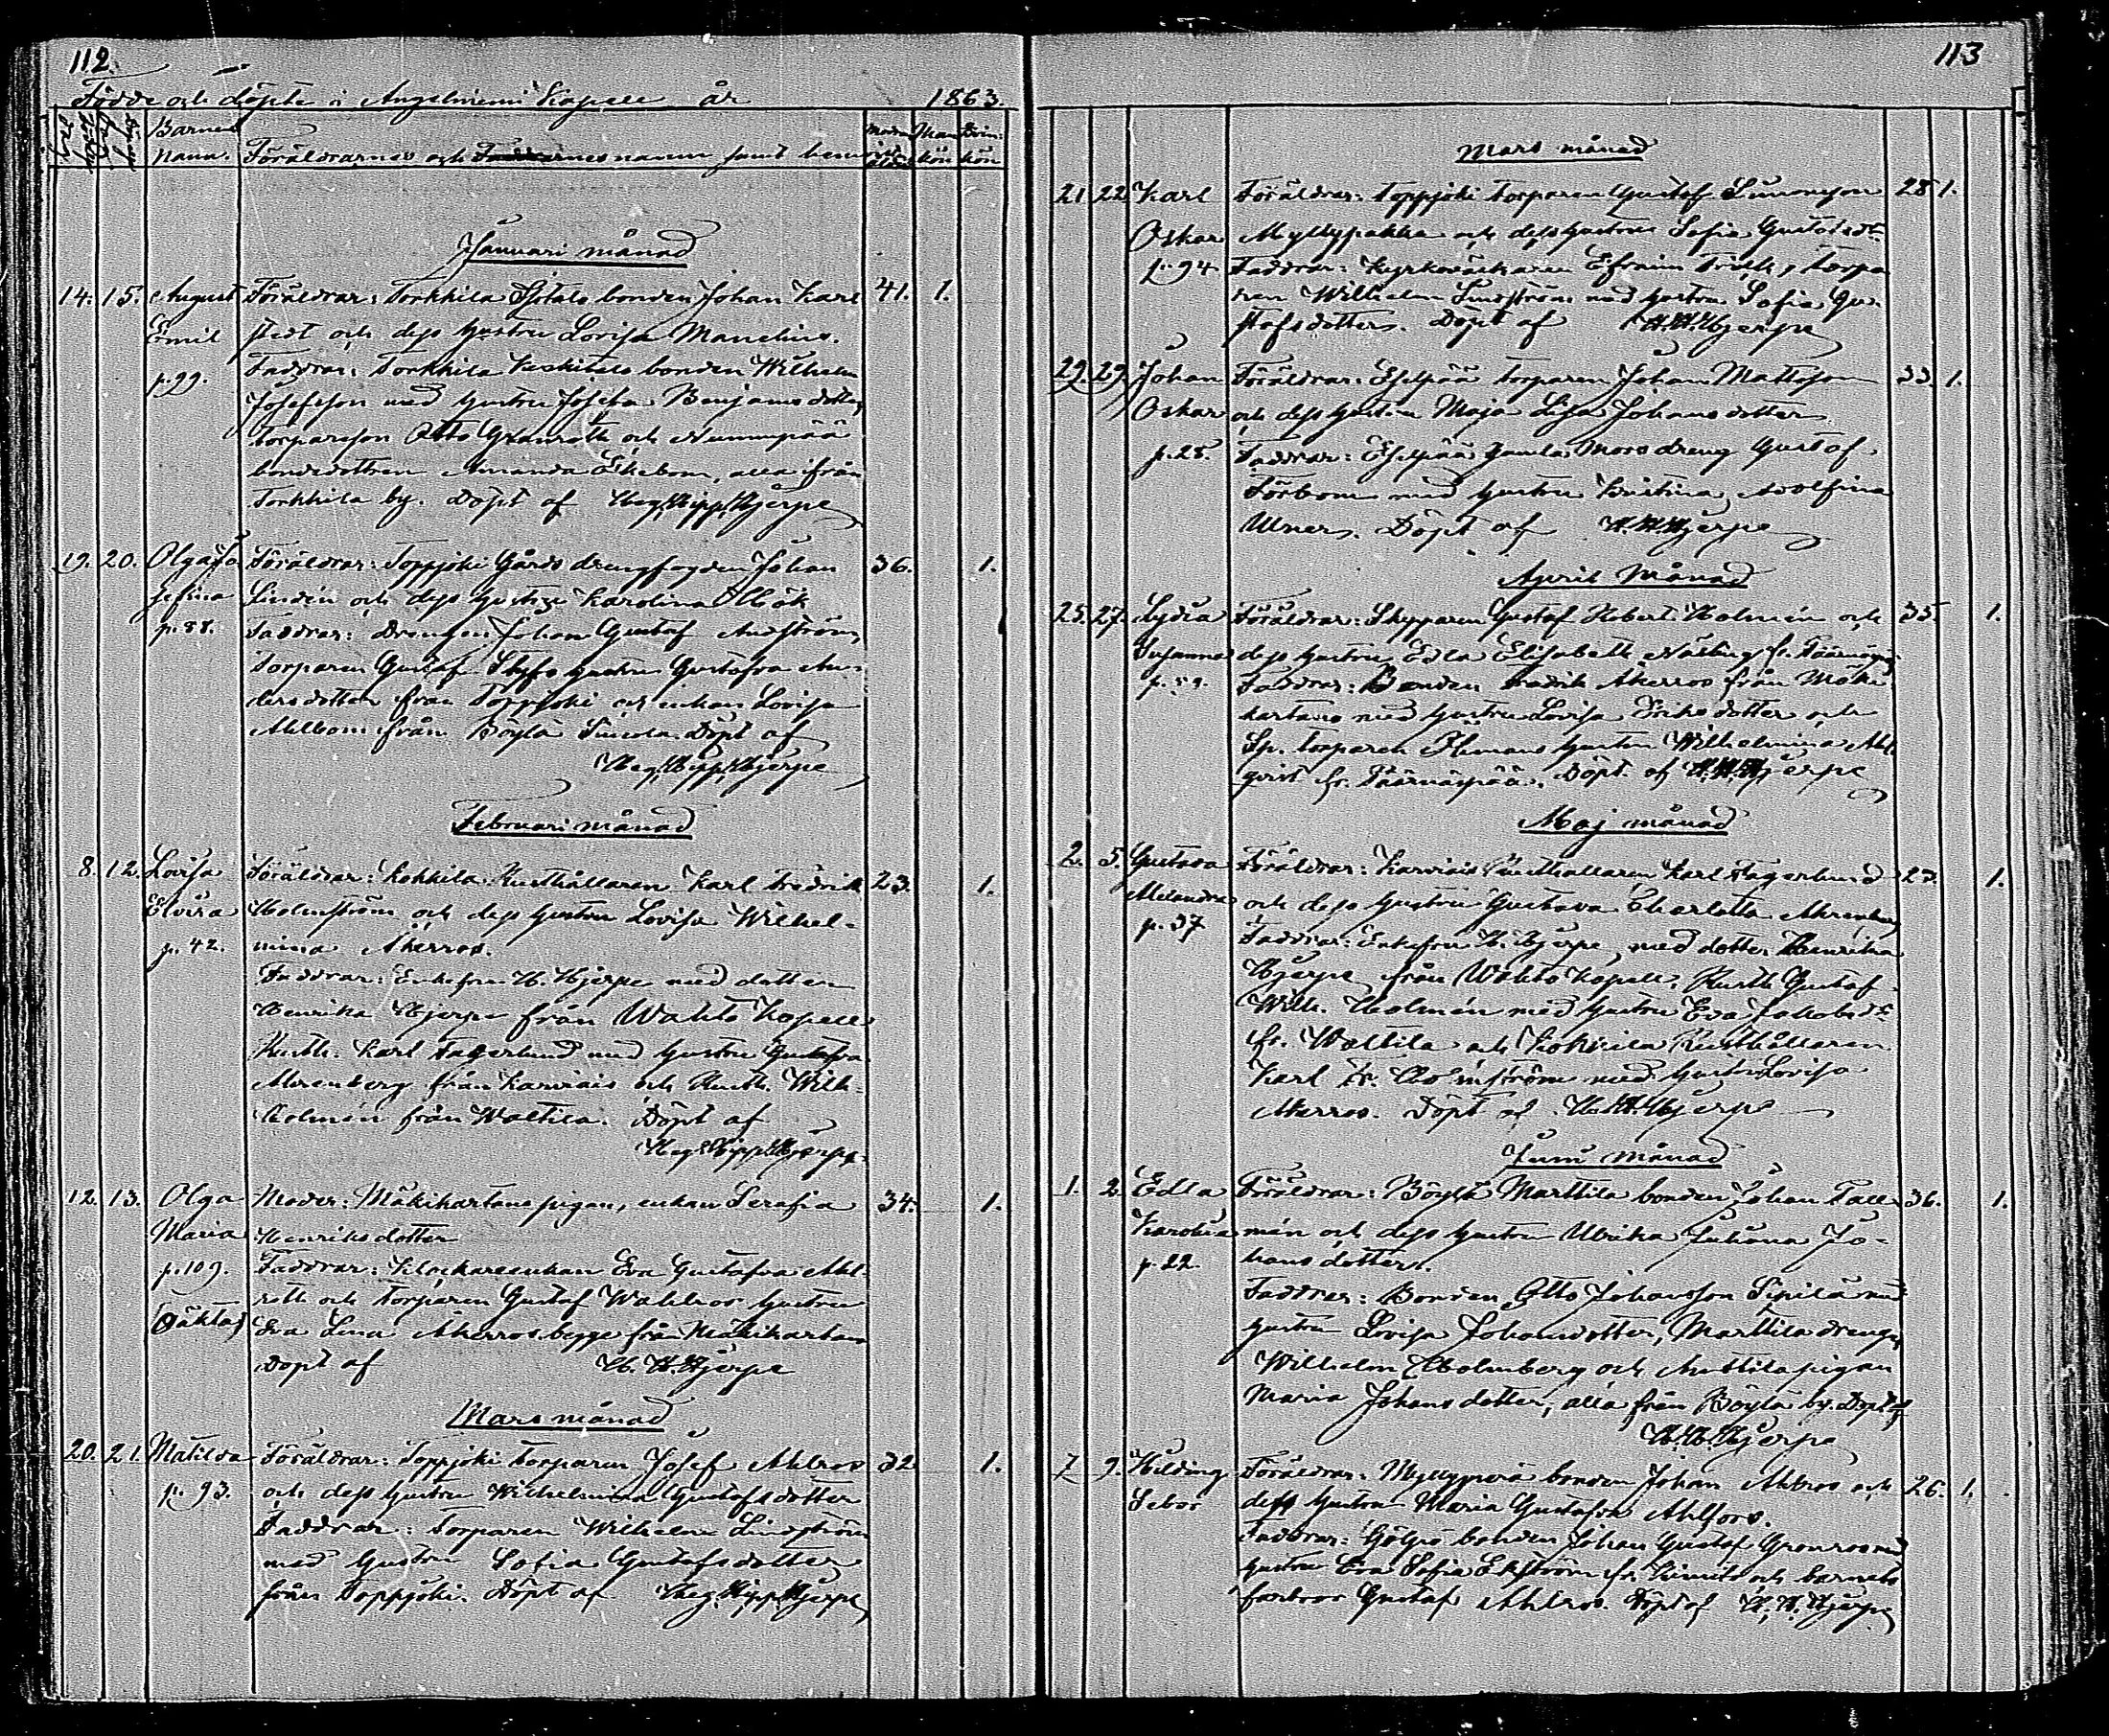 112.
Födde och döpte i Angelniemi Kapell år 1863.
Barnens namn. Föräldrarnes och Faddrarnes namn samt hemvist Modrens ålder Mankön Qvinkön
Januari månad
14. 15. August Föräldrar: Torkkila bonden Johan Karl 41. 1.
Emil stedt och dess hustru Lovisa Manelius.
p. 99. Faddrar: Torkkila Keskitalo bonden Wilhelm
Josefsson med hustru Josefa Benjamsdotter,
torpareson Otto Granroth och Nummipää
bondedottren Amanda Ekebom, alla ifrån
Torkkila by. Döpt af Heg. Hipp. Hjerpe
19. 20. Olga Jo Föräldrar: Toppjoki Gårds drengfogden Johan 36. 1.
sefina Lindén och dess hustru Karolina Höök
p. 88. Faddrar: Drengen Johan Gustaf Andström,
Torparen Gustaf hustru Gustafva An-
dersdotter från Toppjoki och enkan Lovisa
Ahlbom från Böylä Döpt af
Heg. Hipp. Hjerpe
Februari månad
8. 12. Lovisa Föräldrar: Kokkila Rusthållaren Karl Fredrik 23. 1.
Elvira Holmström och dess hustru Lovisa Wilhel-
p. 42. mina Åkerros.
Faddrar: Enkefru H. Hjerpe med dotter
Henrika Hjerpe från Wahto Kapell
Rusth. Karl Fagerlund med hustru Gustafva
Ahrenberg från Karviais och Rusth. Wilh.
Holmén från Waltila. Döpt af
Heg. Hipp. Hjerpe.
12. 13. Olga Moder: Mäkikartano pigan, enkan Serafia 34. 1.
Maria Henriksdotter
p. 109. Faddrar: Klockareenkan Eva Gustafva Ahl-
roth och Torparen Gustaf Wahlros hustru
(Oäkta) Eva Lena Åkerros begge från Mäkikartano
Döpt af H. H. Hjerpe
Mars månad
20. 21. Matilda Föräldrar: Toppjoki Torparen Josef Ahlros 32. 1.
p. 93. och dess hustru Wilhelmina Gustafsdotter
Faddrar: Torparen Wilhelm Lindström
med hustru Sofia Gustafsdotter
från Toppjoki. Döpt af Heg. Hipp. Hjerpe
113
Mars månad
21. 22. Karl Föräldrar: Toppjoki torparen Gustaf Simonsson 28 1.
Oskar Myllypakka och dess hustru Sofia Gustafsdtr
p. 94. Faddrar: Kyrkoväktaren Efraim torpa
ren Wilhelm Lindström med hustru Sofia Gu-
stafsdotter. Döpt af H. H. Hjerpe
29. 29. Johan Föräldrar: Essepää torparen Johan Mattsson 33. 1.
Oskar och dess hustru Maja Lisa Johansdotter
p. 28. Faddrar: Essepää gamla Mors dreng Gustaf
Törbom med hustru Kristina Adolfina
Ulner. Döpt af H. H. Hjerpe
April Månad
25. 27. Lydia Föräldrar: Skepparen Gustaf Robert Holmén och 35. 1.
Susanna dess hustru Edla Elisabeth fr. Päärnäspää
p. 59. Faddrar: Bonden Fredrik Åkerros från Mäki-
kartano med hustru Lovisa Eriksdotter och
Sp. torparen hustru Wilhelmina Ahl
qvist fr. Päärnäspää. Döpt af H. H. Hjerpe
Maj månad
2. 5. Gustava Föräldrar: Karviais Rusthållaren Karl Fagerlund 27. 1.
Melandra och dess hustru Gustava Charlotta Ahrenberg
p. 37 Faddrar: Enkefru H. Hjerpe, med dotter Henrika
Hjerpe från Wahto Kapell, Rusth. Gustaf
Wilh. Holmén med hustru Eva Jakobsdtr
fr. Waltila och Kokkila Rusthållaren
Karl Fr. Holmström med hustru Lovisa
Åkerros. Döpt af H. H. Hjerpe
Juni månad
1. 2. Edla Föräldrar: Böylä Marttila bonden Johan Tall- 36. 1.
Karolina mén och dess hustru Ulrika Juliana Jo-
p. 22. hansdotter.
Faddrar: Bonden Otto Johansson Sipilä med
hustru Lovisa Johansdotter, Marttila drengen
Wilhelm Holmberg och Anttila pigan
Maria Johansdotter, alla från Böylä by. Döpt af
H. H. Hjerpe
7. 9. Hilding Föräldrar: Myllyperä bonden Johan Ahlros och 26. 1.
dess hustru Maria Gustafva Ahlfors.
Faddrar: bonden Johan Gustaf Grönroos med
hustru Eva Sofia Ekström fr. Kimito och barnets
farbror Gustaf Ahlros. Döpt af H. H. Hjerpe